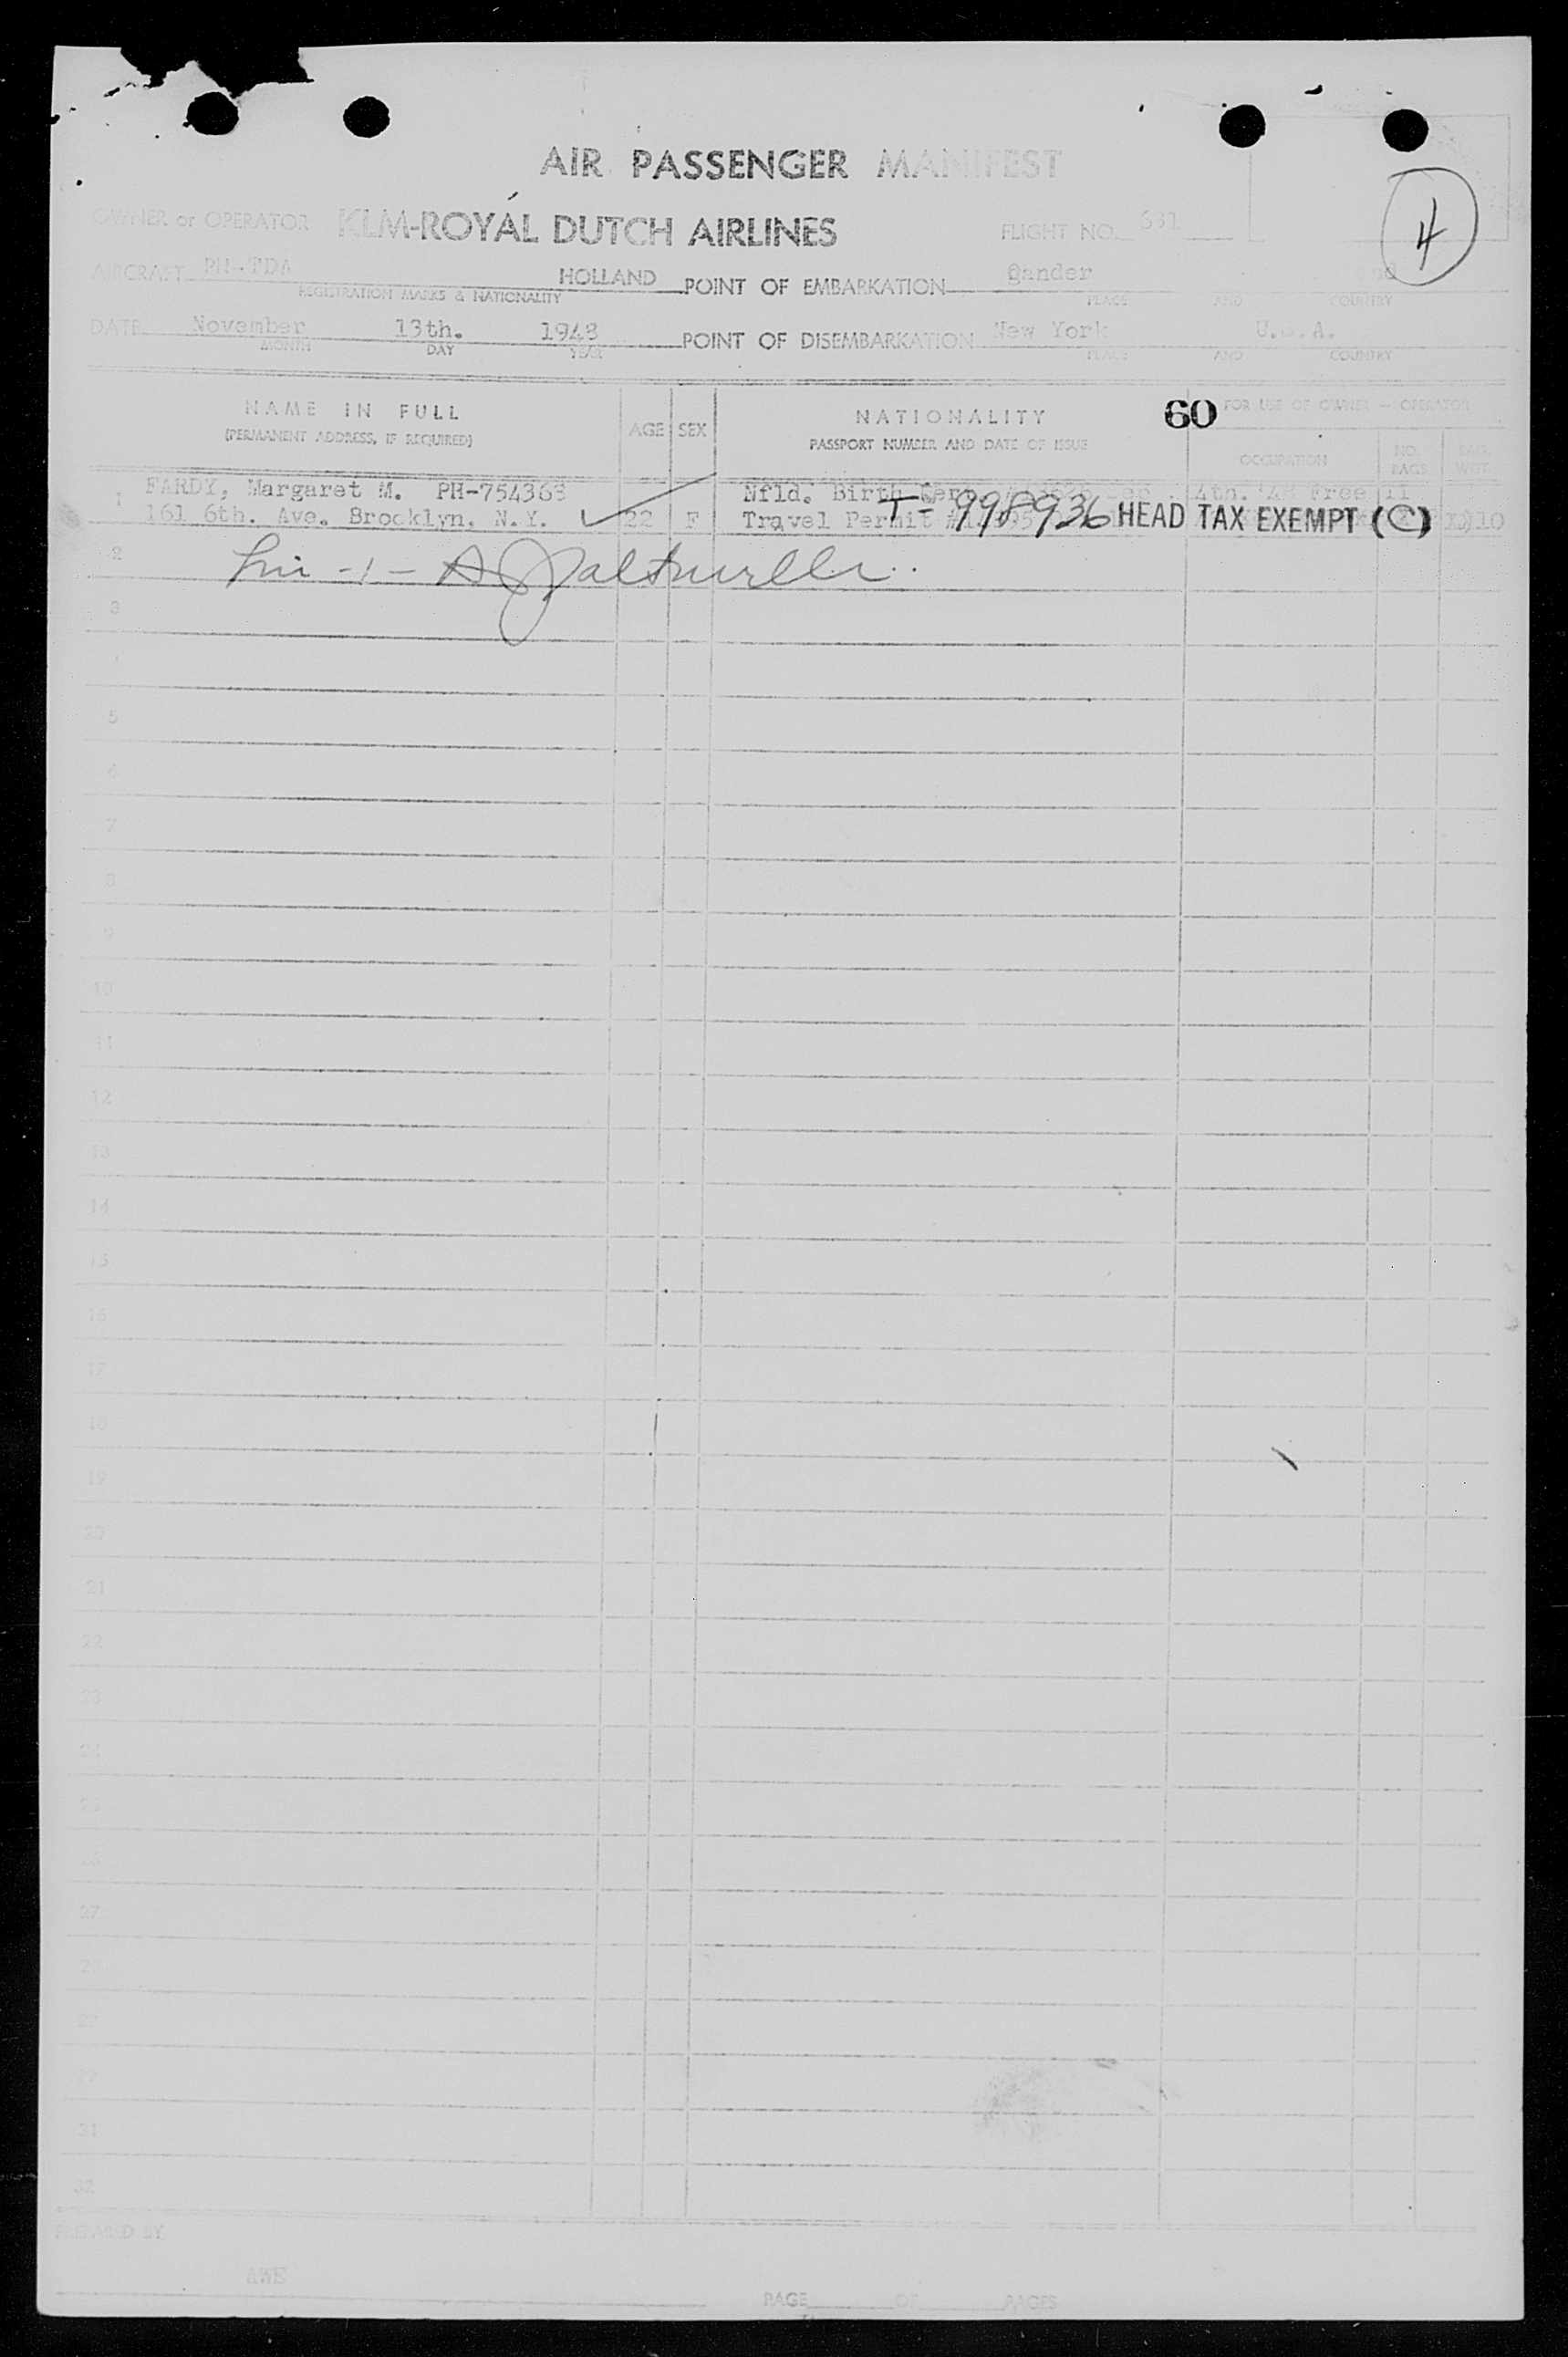 4
AIR PASSENGER MANIFEST
OWNER or OPERATOR KLM-ROYAL DUTCH AIRLINES FLIGHT NO. 631
AIRCRAFT PH-TDA HOLLAND POINT OF EMBARKATION Gander
REGISTRATION MARKS & NATIONALITY PLACE AND COUNTRY
DATE November 13th. 1948 POINT OF DISEMBARKATION New York U.S.A.
MONTH DAY YEAR PLACE AND COUNTRY
NAME IN FULL AGE SEX NATIONALITY 60 FOR USE OF OWNER - OPERATOR
(PERMANENT ADDRESS, IF REQUIRED) PASSPORT NUMBER AND DATE OF ISSUE OCCUPATION NO. BAGS BAG. WGT.
1 FARDY, Margaret M. PH-754363 Nfld. Birth 4th. '48 Free 11
161 6th. Ave. Brooklyn, N.Y. 22 F Travel Permit T-998936 HEAD TAX EXEMPT (C) 10
2
3
5
6
7
8
9
10
11
12
13
14
15
16
17
18
19
20
21
22
23
24
25
26
27
31
32
PREPARED BY
AWE
PAGE OF PAGES